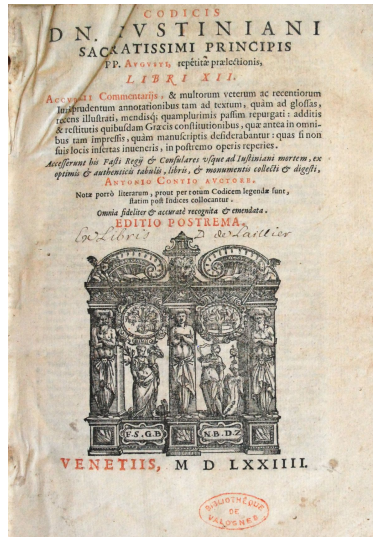 CODICIS
DN. IVSTINIANI
SACRATISSIMI PRINCIPIS
PP. AVGVSTI, repetitæ prælectionis,
LIBRI XII.
ACCVRSII Commentarijs, & multorum veterum ac recentiorum
Iurisprudentum annotationibus tam ad textum, quàm ad glossas,
recens illustrati, mendisq; quamplurimis passim repurgati: additis
& restitutis quibusdam Græcis constitutionibus, quæ antea in omni-
bus tam impressis, quàm manuscriptis desiderabantur: quas si non
suis locis insertas inueneris, in postremo operis reperies.
Accesserunt his Fasti Regij & Consulares vsque ad Iustiniani mortem, ex
optimis & authenticis tabulis, libris, & monumentis collecti & digesti,
ANTONIO CONTIO AVCTORE.
Notæ porrò literarum, prout per totum Codicem legendæ sunt,
statim post Indices collocantur.
Omnia fideliter & accuratè recognita & emendata.
EDITIO POSTREMA.
Ex Libris D. de
F.S.G.B N.B.D.Z
VENETIIS, M D LXXIIII.
BIBLIOTHÉQUE
DE
VALOGNES